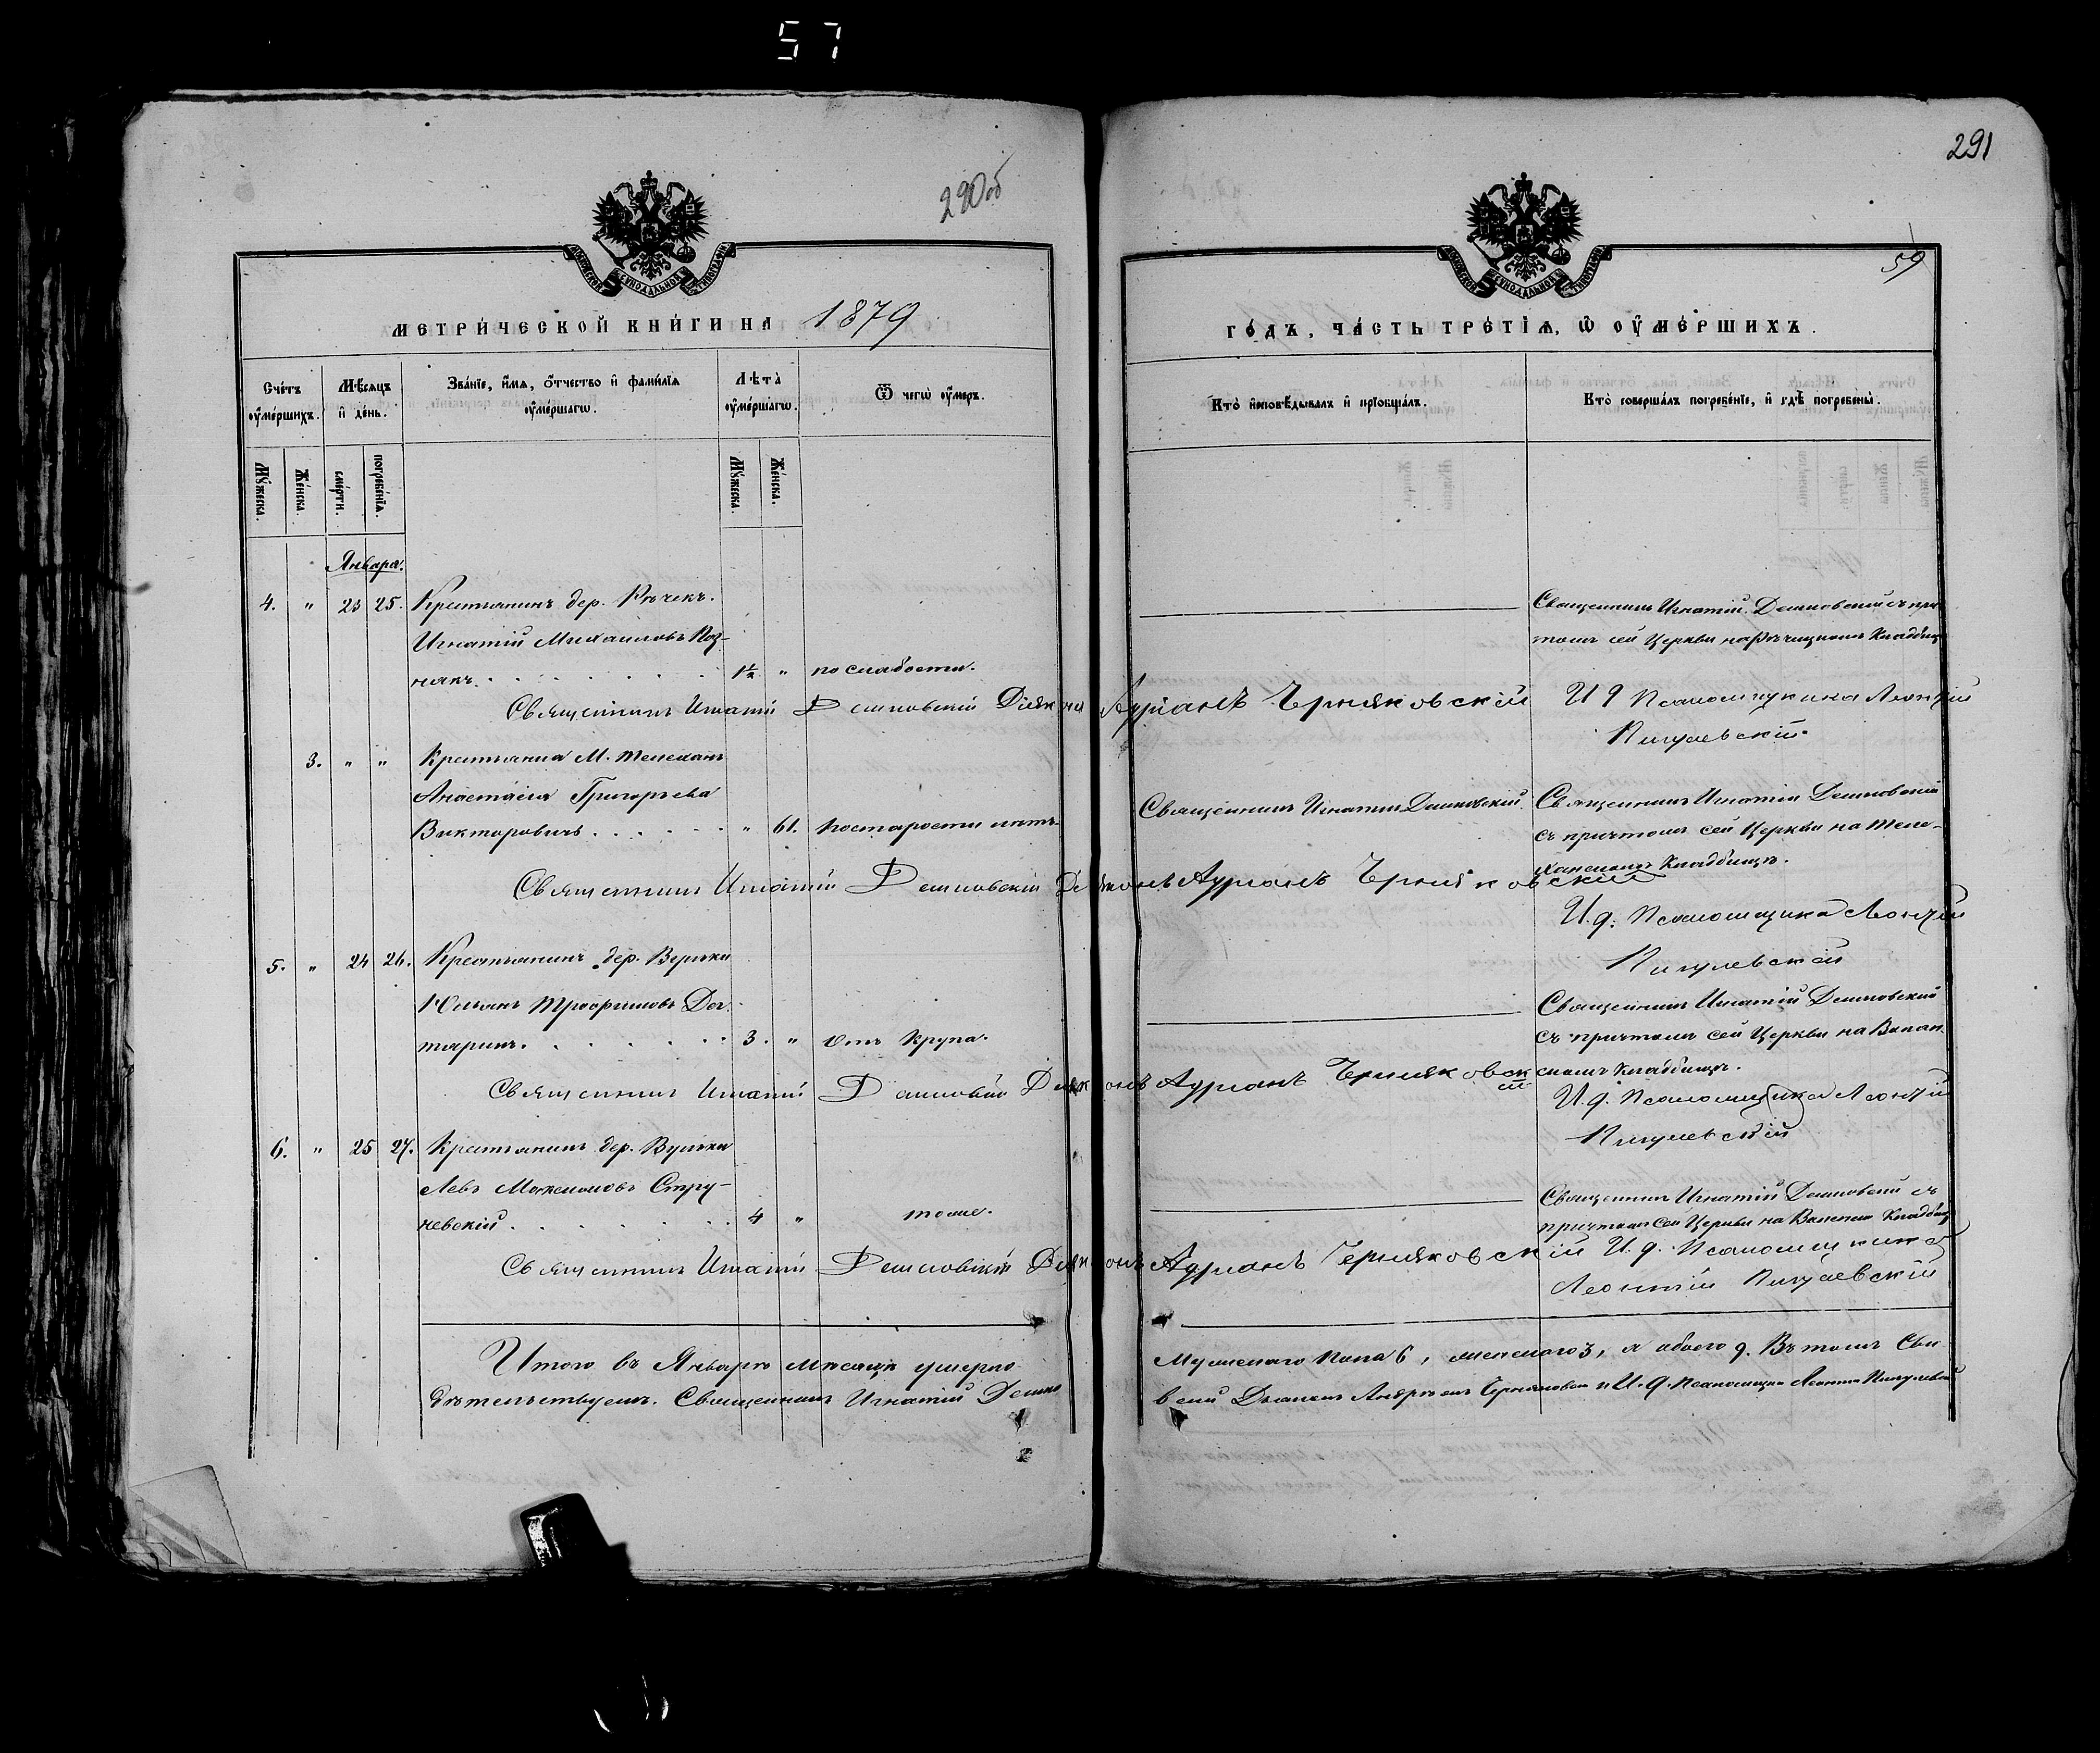 57
290об
291
59
МОСКОВСКОЙ СѴНОДАЛЬНОЙ ТИПОГРАФІИ
МОСКОВСКОЙ СѴНОДАЛЬНОЙ ТИПОГРАФІИ
МЕТРИ́ЧЕСКОЙ КНИ́ГИ НА 1879
ГО́ДЪ, ЧА́СТЬ ТРЕ́ТІѦ, Ѡ҆ ОУ҆МЕ́РШИХЪ.
Сче́тъ оу҆ме́ршихъ.
Мѣ́сѧцъ и҆ де́нь.
Зва́нїе, и҆́мѧ, о҆́тчество и҆ фами́лїѧ оу҆ме́ршагѡ.
Лѣта̀ оу҆ме́ршагѡ.
Ѿ чегѡ̀ оу҆́меръ.
Кто̀ и҆сповѣ́дывалъ и҆ прїобща́лъ.
Кто̀ соверша́лъ погребе́нїе, и҆ гдѣ̀ погребены̀.
Мꙋ́жеска.
Же́нска.
сме́рти.
погребе́нїѧ.
Мꙋ́жеска.
Же́нска.
Января.
4. " 23 25. Крестьянинъ дер. Рѣчекъ.
Игнатій Михаиловъ Поз-
някъ. 1½ " по слабости.
Священникъ Игнатій Дешковскій съ прич
томъ сей Церкви на Рѣчицкомъ Кладбищ
Священникъ Игнатій Дешковскій Діаконъ Адріанъ Черняковскій И д Псаломщика Леонтій
Пигулевскій.
3. " " Крестьянка М. Телеханъ
Анастасія Григорьева
Викторовичъ. " 61. по старости лѣтъ
Священникъ Игнатій Дешковскій
Священникъ Игнатій Дешковскій
съ причтомъ сей Церкви на Теле-
ханскомъ Кладбищѣ.
Священникъ Игнатій Дешковскій Діаконъ Адріанъ Черняковскій
И. д. Псаломщика Леонтій
Пигулевскій
5. " 24 26. Крестьянинъ дер. Вульки
Юльянъ Трофимовъ Дег-
тярикъ. 3. " Отъ крупа.
Священникъ Игнатій Дешковскій
съ причтомъ сей Церкви на
скомъ Кладбищѣ.
Священникъ Игнатій Дешковскій Діаконъ Адріанъ Черняковскій
И. д. Псаломщика Леонтій
Пигулевскій
6. " 25 27. Крестьянинъ дер. Вульки
Левъ Максимовъ Стру-
невскій. 4 " тоже.
Священникъ Игнатій Дешковскій съ
причтомъ сей Церкви на Кладбищ
Священникъ Игнатій Дешковскій Діаконъ Адріанъ Черняковскій И. д. Псаломщика
Леонтій Пигулевскій
Итого въ Январѣ мѣсяцѣ умерло Мужескаго пола 6, женскаго 3, а обоего 9. Въ томъ Сви
дѣтельствуемъ. Священникъ Игнатій Дешко вскій Діаконъ Черняковскій и И. д. Псаломщика Леонтій Пигулевскій